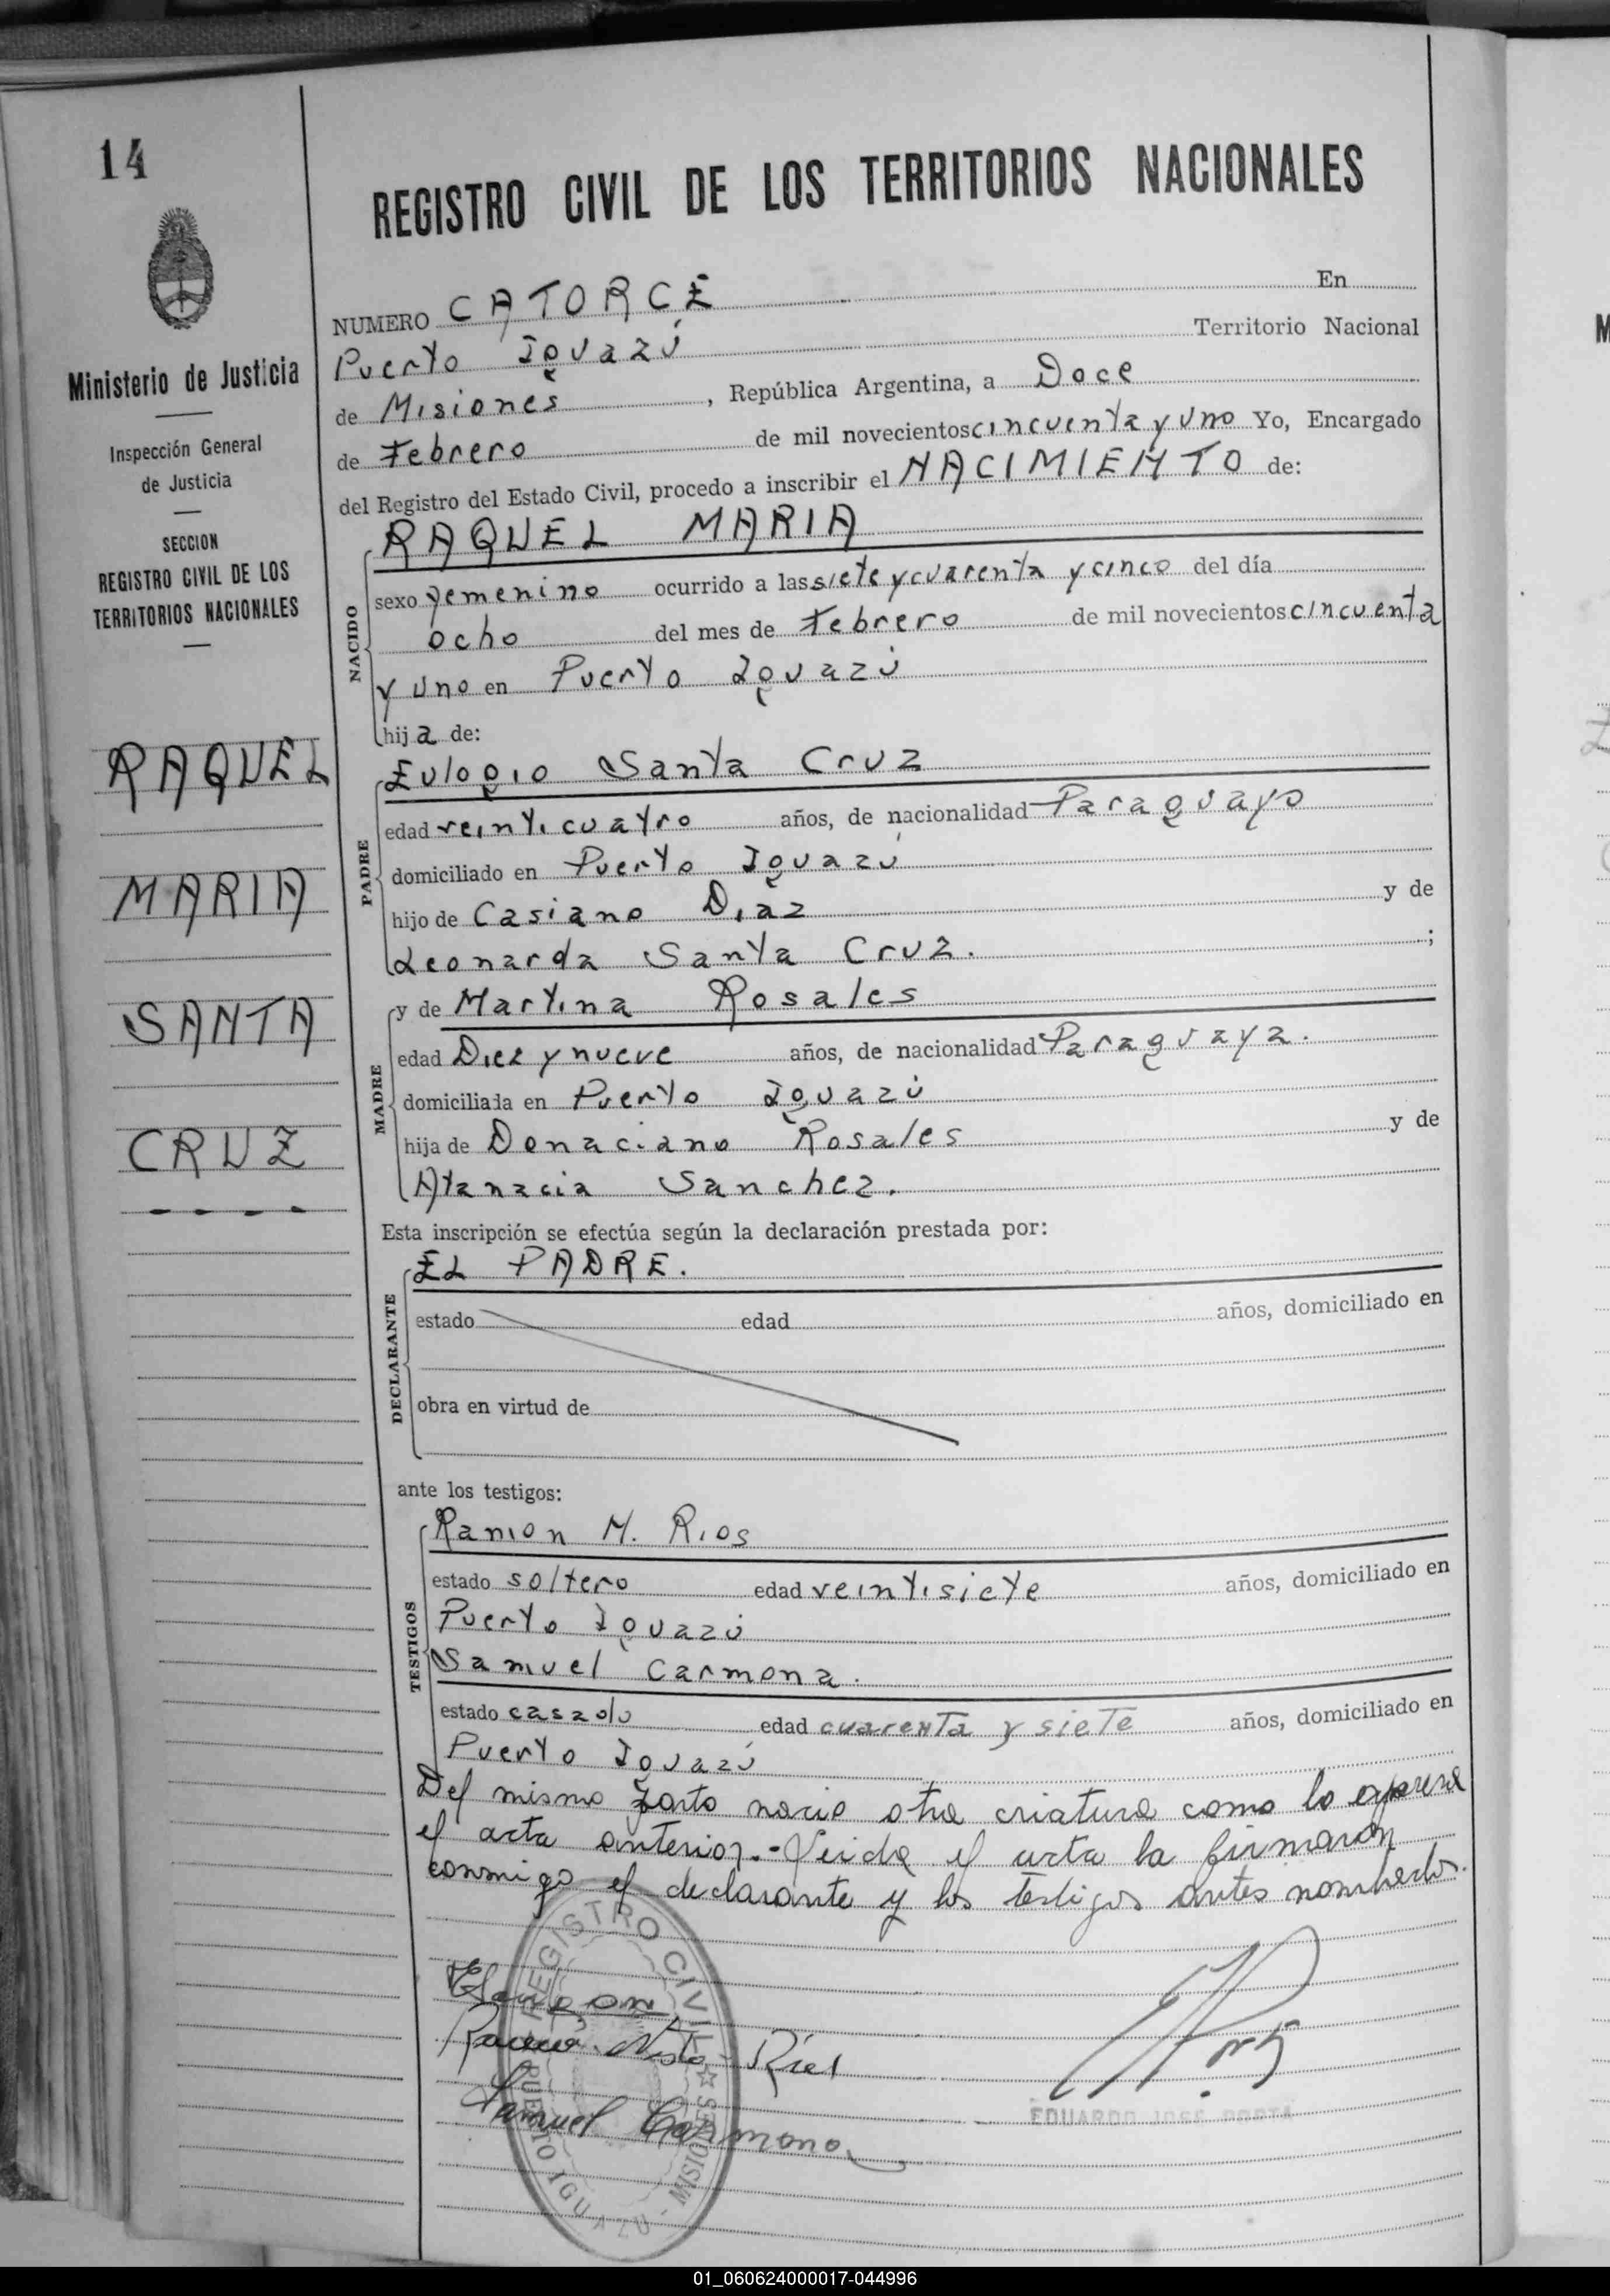 14
REGISTRO CIVIL DE LOS TERRITORIOS NACIONALES
Ministerio de Justicia
Inspección General
de Justicia
SECCION
REGISTRO CIVIL DE LOS
TERRITORIOS NACIONALES
RAQUEL
MARIA
SANTA
CRUZ
NUMERO CATORCE En
Puerto Iguazú Territorio Nacional
de Misiones, República Argentina, a Doce
de Febrero de mil novecientos cincuenta y uno Yo, Encargado
del Registro del Estado Civil, procedo a inscribir el NACIMIENTO de:
NACIDO
RAQUEL MARIA
sexo femenino ocurrido a las siete y cuarenta y cinco del día
ocho del mes de Febrero de mil novecientos cincuenta
y uno en Puerto Iguazú
hija de:
PADRE
Eulogio Santa Cruz
edad veinticuatro años, de nacionalidad Paraguayo
domiciliado en Puerto Iguazú
hijo de Casiano Diaz y de
Leonarda Santa Cruz. ;
MADRE
y de Martina Rosales
edad Diez y nueve años, de nacionalidad Paraguaya.
domiciliada en Puerto Iguazú
hija de Donaciano Rosales y de
Atanacia Sanchez.
Esta inscripción se efectúa según la declaración prestada por:
DECLARANTE
EL PADRE.
estado edad años, domiciliado en
obra en virtud de
ante los testigos:
TESTIGOS
Ramon N. Rios
estado soltero edad veintisiete años, domiciliado en
Puerto Iguazú
Samuel Carmona.
estado casado edad cuarenta y siete años, domiciliado en
Puerto Iguazú
Del mismo parto nacio otra criatura como lo expresa
el acta anterior.- Leida el acta la firmaron
conmigo el declarante y los testigos antes nombrados.
REGISTRO CIVIL
PUERTO IGUAZU - MISIONES
Samuel Carmona
EDUARDO JOSE PORTA
01_060624000017-044996